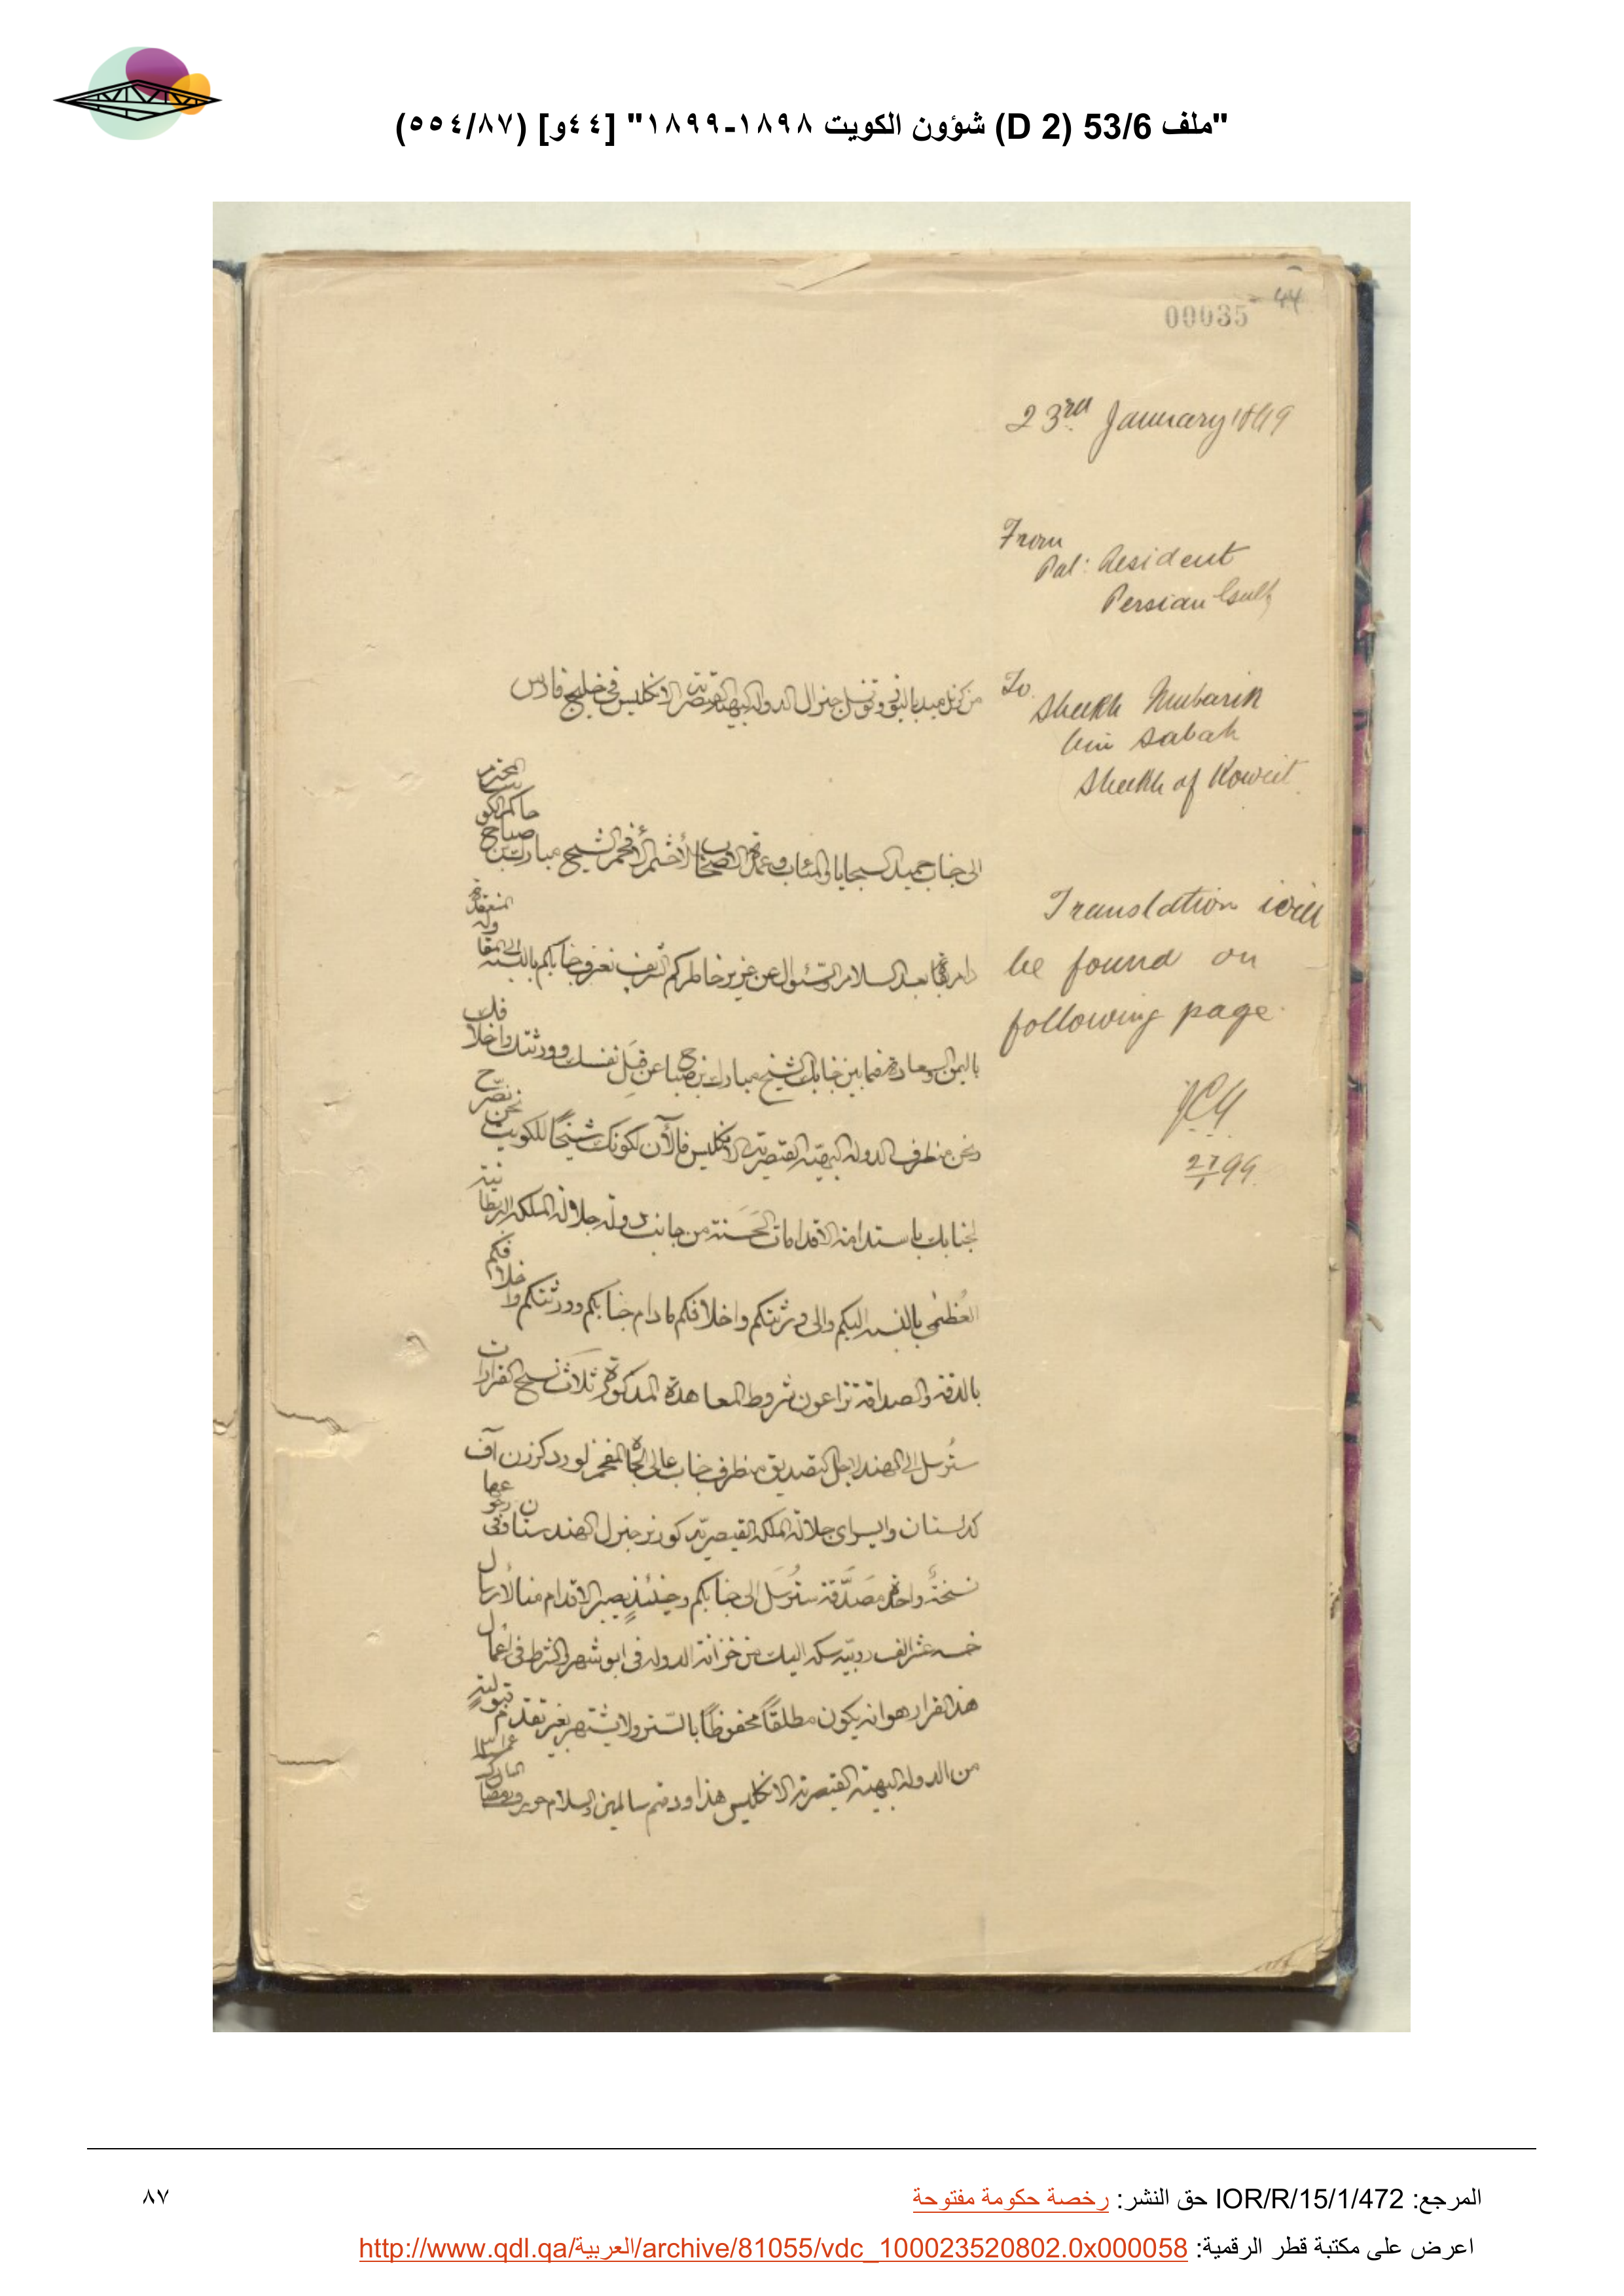 "ملف 53/6 (D 2) شؤون الكويت ١٨٩٨-١٨٩٩" [٤٤و] (٥٥٤/٨٧)
44
00035
23rd January 1899
From
Pol: Resident
Persian Gulf
To
Sheikh Mubarik
bin Sabah
Sheikh of Koweit
Translation will
be found on
following page.
من كرنل ميد باليوز وقونسل جنرال الدولة البهية القيصرية الانكليس في خليج فارس
الى جناب حميد السجايا والمئاب وعمدة الاصحاب الأحشم الأفخم الشيخ مبارك بن صباح حاكم الكويت المحترم
دام بقاه بعد السلام والسئوال عن عزيز خاطركم الشريف نعرف جنابكم بالنسبة الى المقاولة المنعقدة
باليمن والسعادة فيما بين جنابك الشيخ مبارك بن صباح عن قِبَل نفسك وورثتك واخلافك
ونحن من طرف الدولة البهية القيصرية الانكليس فالآن لكونك شيخاً للكويت نحن نصرّح
لجنابك باستدامة الاقدامات الحَسَنة من جانب دولة جلالة الملكة البريطانية
العُظمى بالنسبة اليكم والى ورثتكم واخلافكم مادام جنابكم وورثتكم واخلافكم
بالدقة والصداقة تراعون شروط المعاهدة المذكورة ثلاث نسخ القرارات
ستُرسل الى الهند لاجل التصديق من طرف جناب عالى الجاه المفخم لورد كرزن آف
كدلستان وايسراى جلالة الملكة القيصرية كورنر جنرل الهند
نسخةٌ واحدة مصَدَّقة ستُرسَل الى جنابكم وحينئذٍ يصير الاقدام منا لأرسال
خمسة عشر الف روپيّة سكه اليك من خزانة الدولة فى ابوشهر والشرط فى اعمال
هذا القرار هو انه يكون مطلقاً محفوظاً بالستر ولا يشتهر بغير تقدم قبوليةٍ
من الدولة البهية القيصرية الانكليس هذا ودمتم سالمين والسلام
المرجع: IOR/R/15/1/472 حق النشر: رخصة حكومة مفتوحة
٨٧
اعرض على مكتبة قطر الرقمية: http://www.qdl.qa/العربية/archive/81055/vdc_100023520802.0x000058